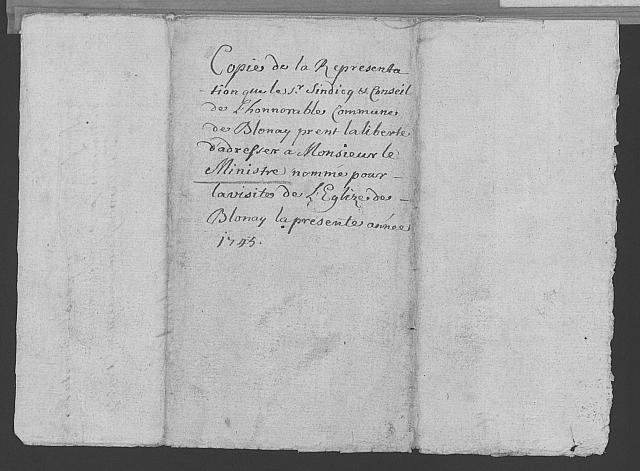 Copie de la Representa
tion que le Sr. Sindicq & Conseil
de L'honnorable Commune
de Blonay prent la liberte
d'adresser a Monsieur le
Ministre nommé pour -
la visite de L'Eglize de -
Blonay la presente année
1745.